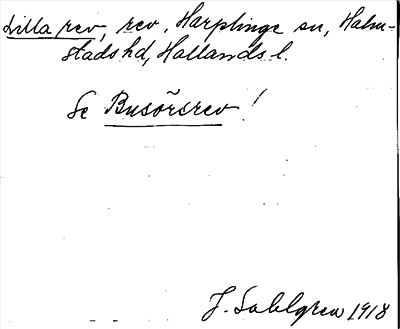 Lilla rev, rev, Harplinge sn, Halm-
stads hd, Hallands l.
Se Busörsrev!
J. Sahlgren 1918